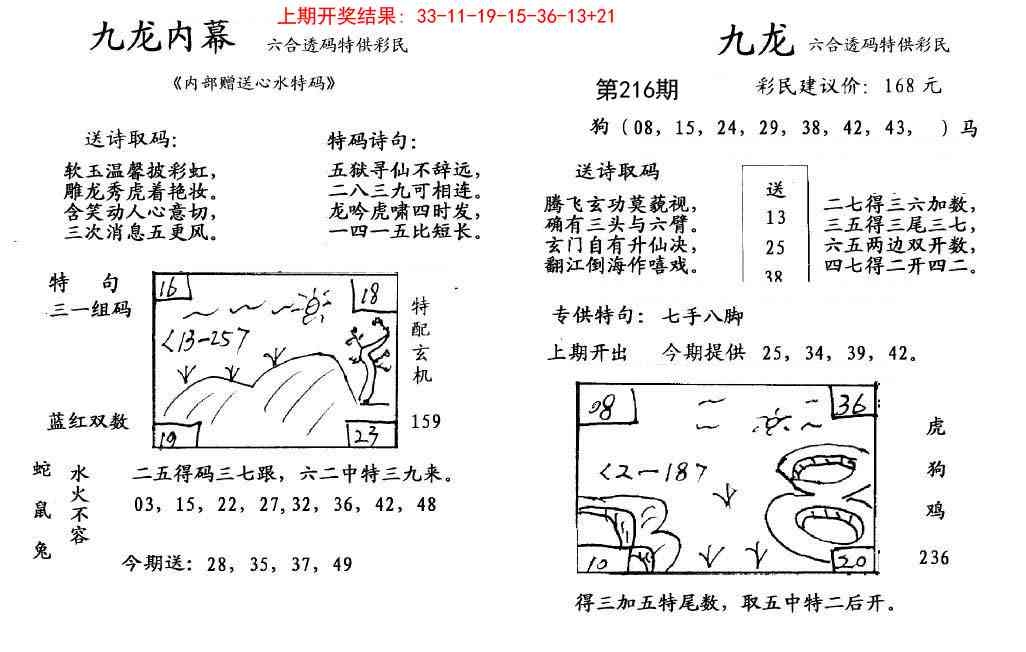 上期开奖结果：33-11-19-15-36-13+21
九龙内幕 六合透码特供彩民
《内部赠送心水特码》
送诗取码：
软玉温馨披彩虹，
雕龙秀虎着艳妆。
含笑动人心意切，
三次消息五更风。
特码诗句：
五狱寻仙不辞远，
二八三九可相连。
龙吟虎啸四时发，
一四一五比短长。
特 句
三一组码
蓝红双数
16
18
<13-257
19
23
特配玄机
159
蛇鼠兔
水火不容
二五得码三七跟，六二中特三九来。
03，15，22，27,32，36，42，48
今期送：28，35，37，49
九龙 六合透码特供彩民
第216期 彩民建议价：168元
狗（08，15，24，29，38，42，43， ）马
送诗取码
腾飞玄功莫藐视，
确有三头与六臂。
玄门自有升仙决，
翻江倒海作嘻戏。
送
13
25
38
二七得三六加数，
三五得三尾三七，
六五两边双开数，
四七得二开四二。
专供特句：七手八脚
上期开出 今期提供 25，34，39，42。
08
36
<2-187
10
20
虎
狗
鸡
236
得三加五特尾数，取五中特二后开。